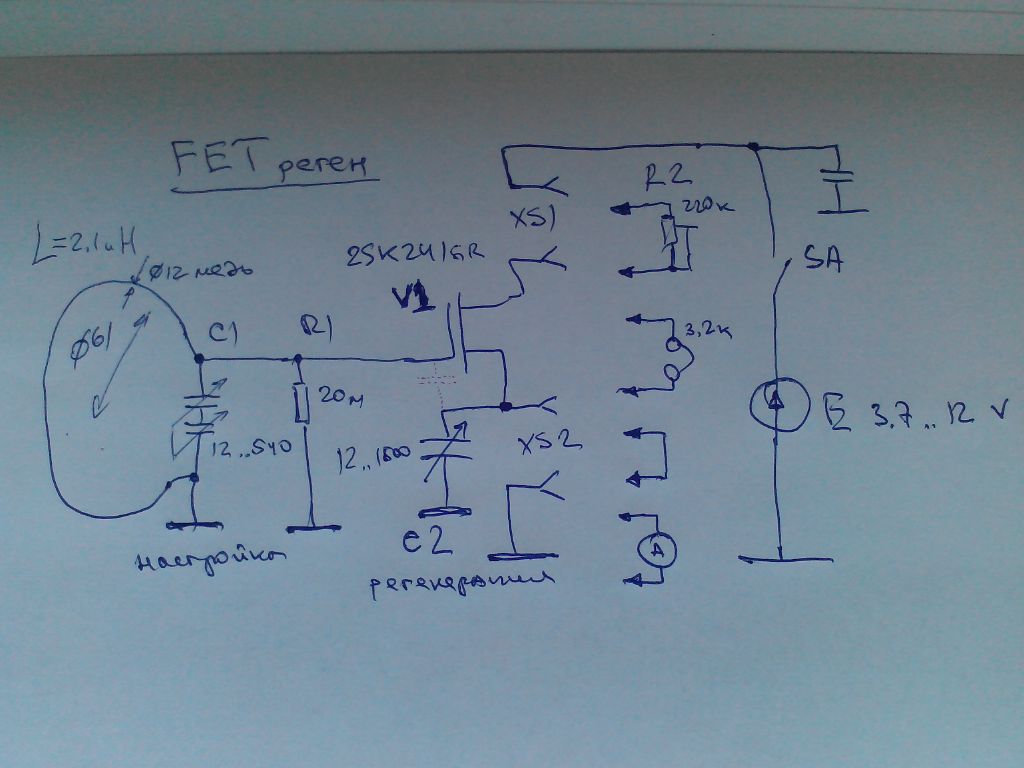 FET реген
L=2.1uH
ø12 медь
ø61
C1
R1
2SK241GR
V1
XS1
R2
220к
SA
20м
12..540
12..1500
XS2
3,2к
E 3.7..12 V
A
C2
настройка
регенерация